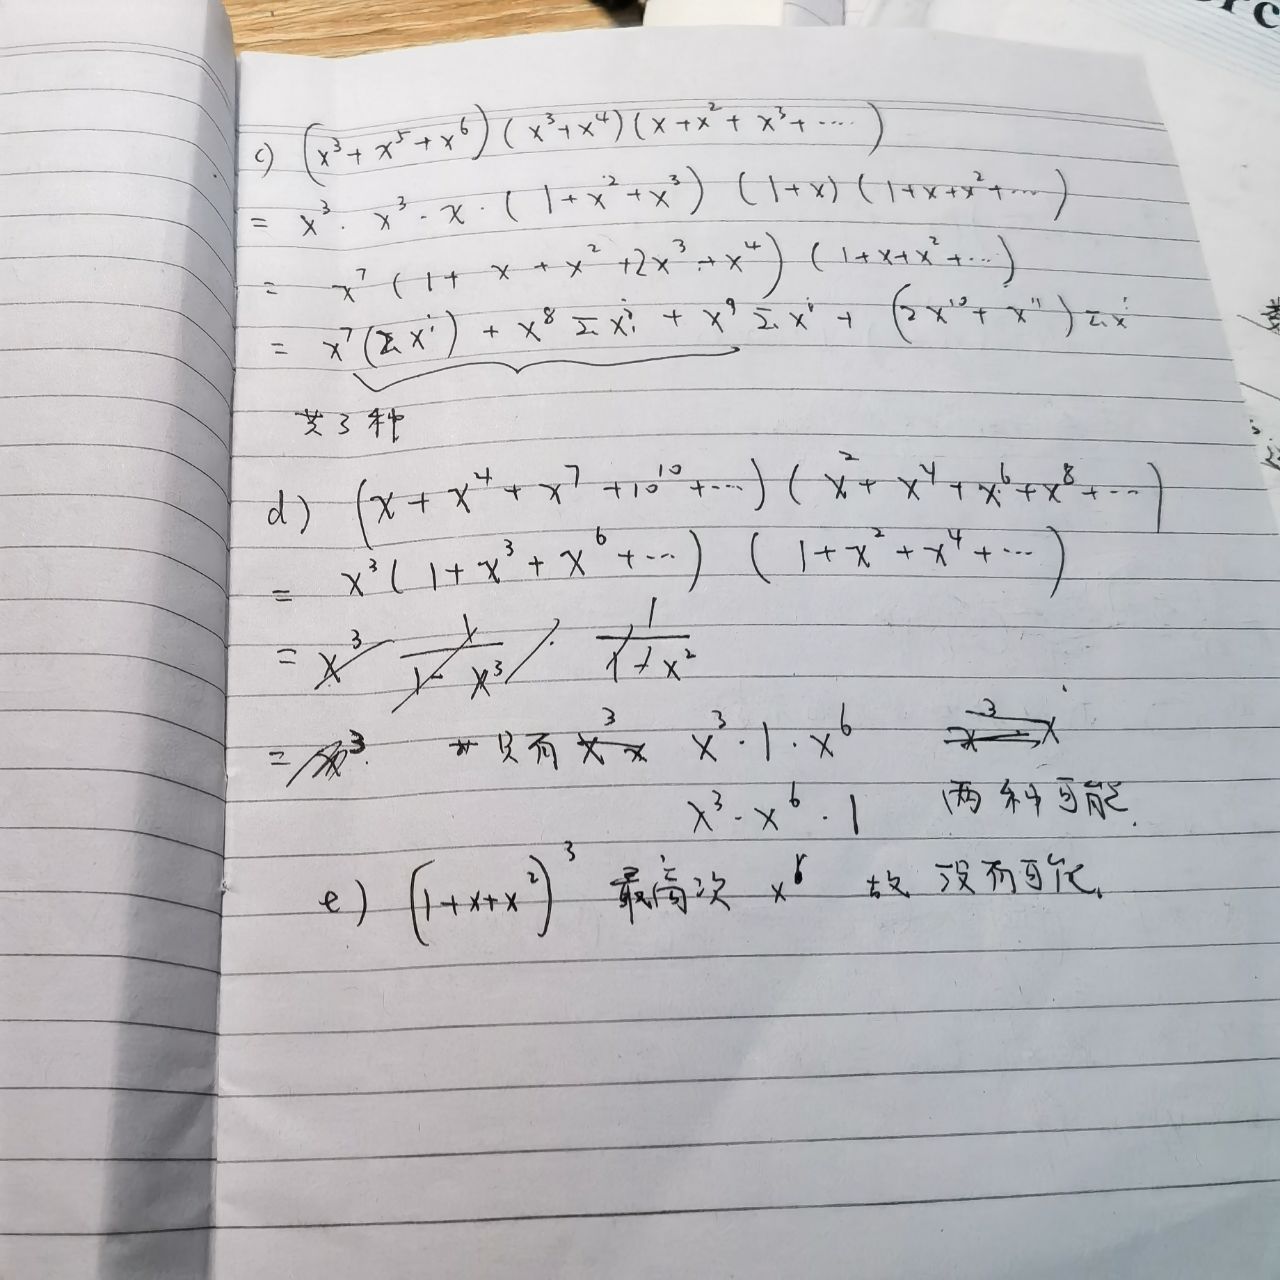 c) (x³ + x⁵ + x⁶) (x³ + x⁴) (x + x² + x³ + ⋯)
= x³ · x³ · x · (1 + x² + x³) (1 + x) (1 + x + x² + ⋯)
= x⁷ (1 + x + x² + 2x³ + x⁴) (1 + x + x² + ⋯)
= x⁷ (Σ xⁱ) + x⁸ Σ xⁱ + x⁹ Σ xⁱ + (2x¹⁰ + x¹¹) Σ xⁱ
共3种
d) (x + x⁴ + x⁷ + 10¹⁰ + ⋯) (x² + x⁴ + x⁶ + x⁸ + ⋯)
= x³ (1 + x³ + x⁶ + ⋯) (1 + x² + x⁴ + ⋯)
= x³ 1/(1 - x³) · 1/(1 + x²)
= x³ 只有 x³ · 1 · x⁶
x³ · x⁶ · 1 两种可能.
e) (1 + x + x²)³ 最高次 x⁶ 故 没有可能.